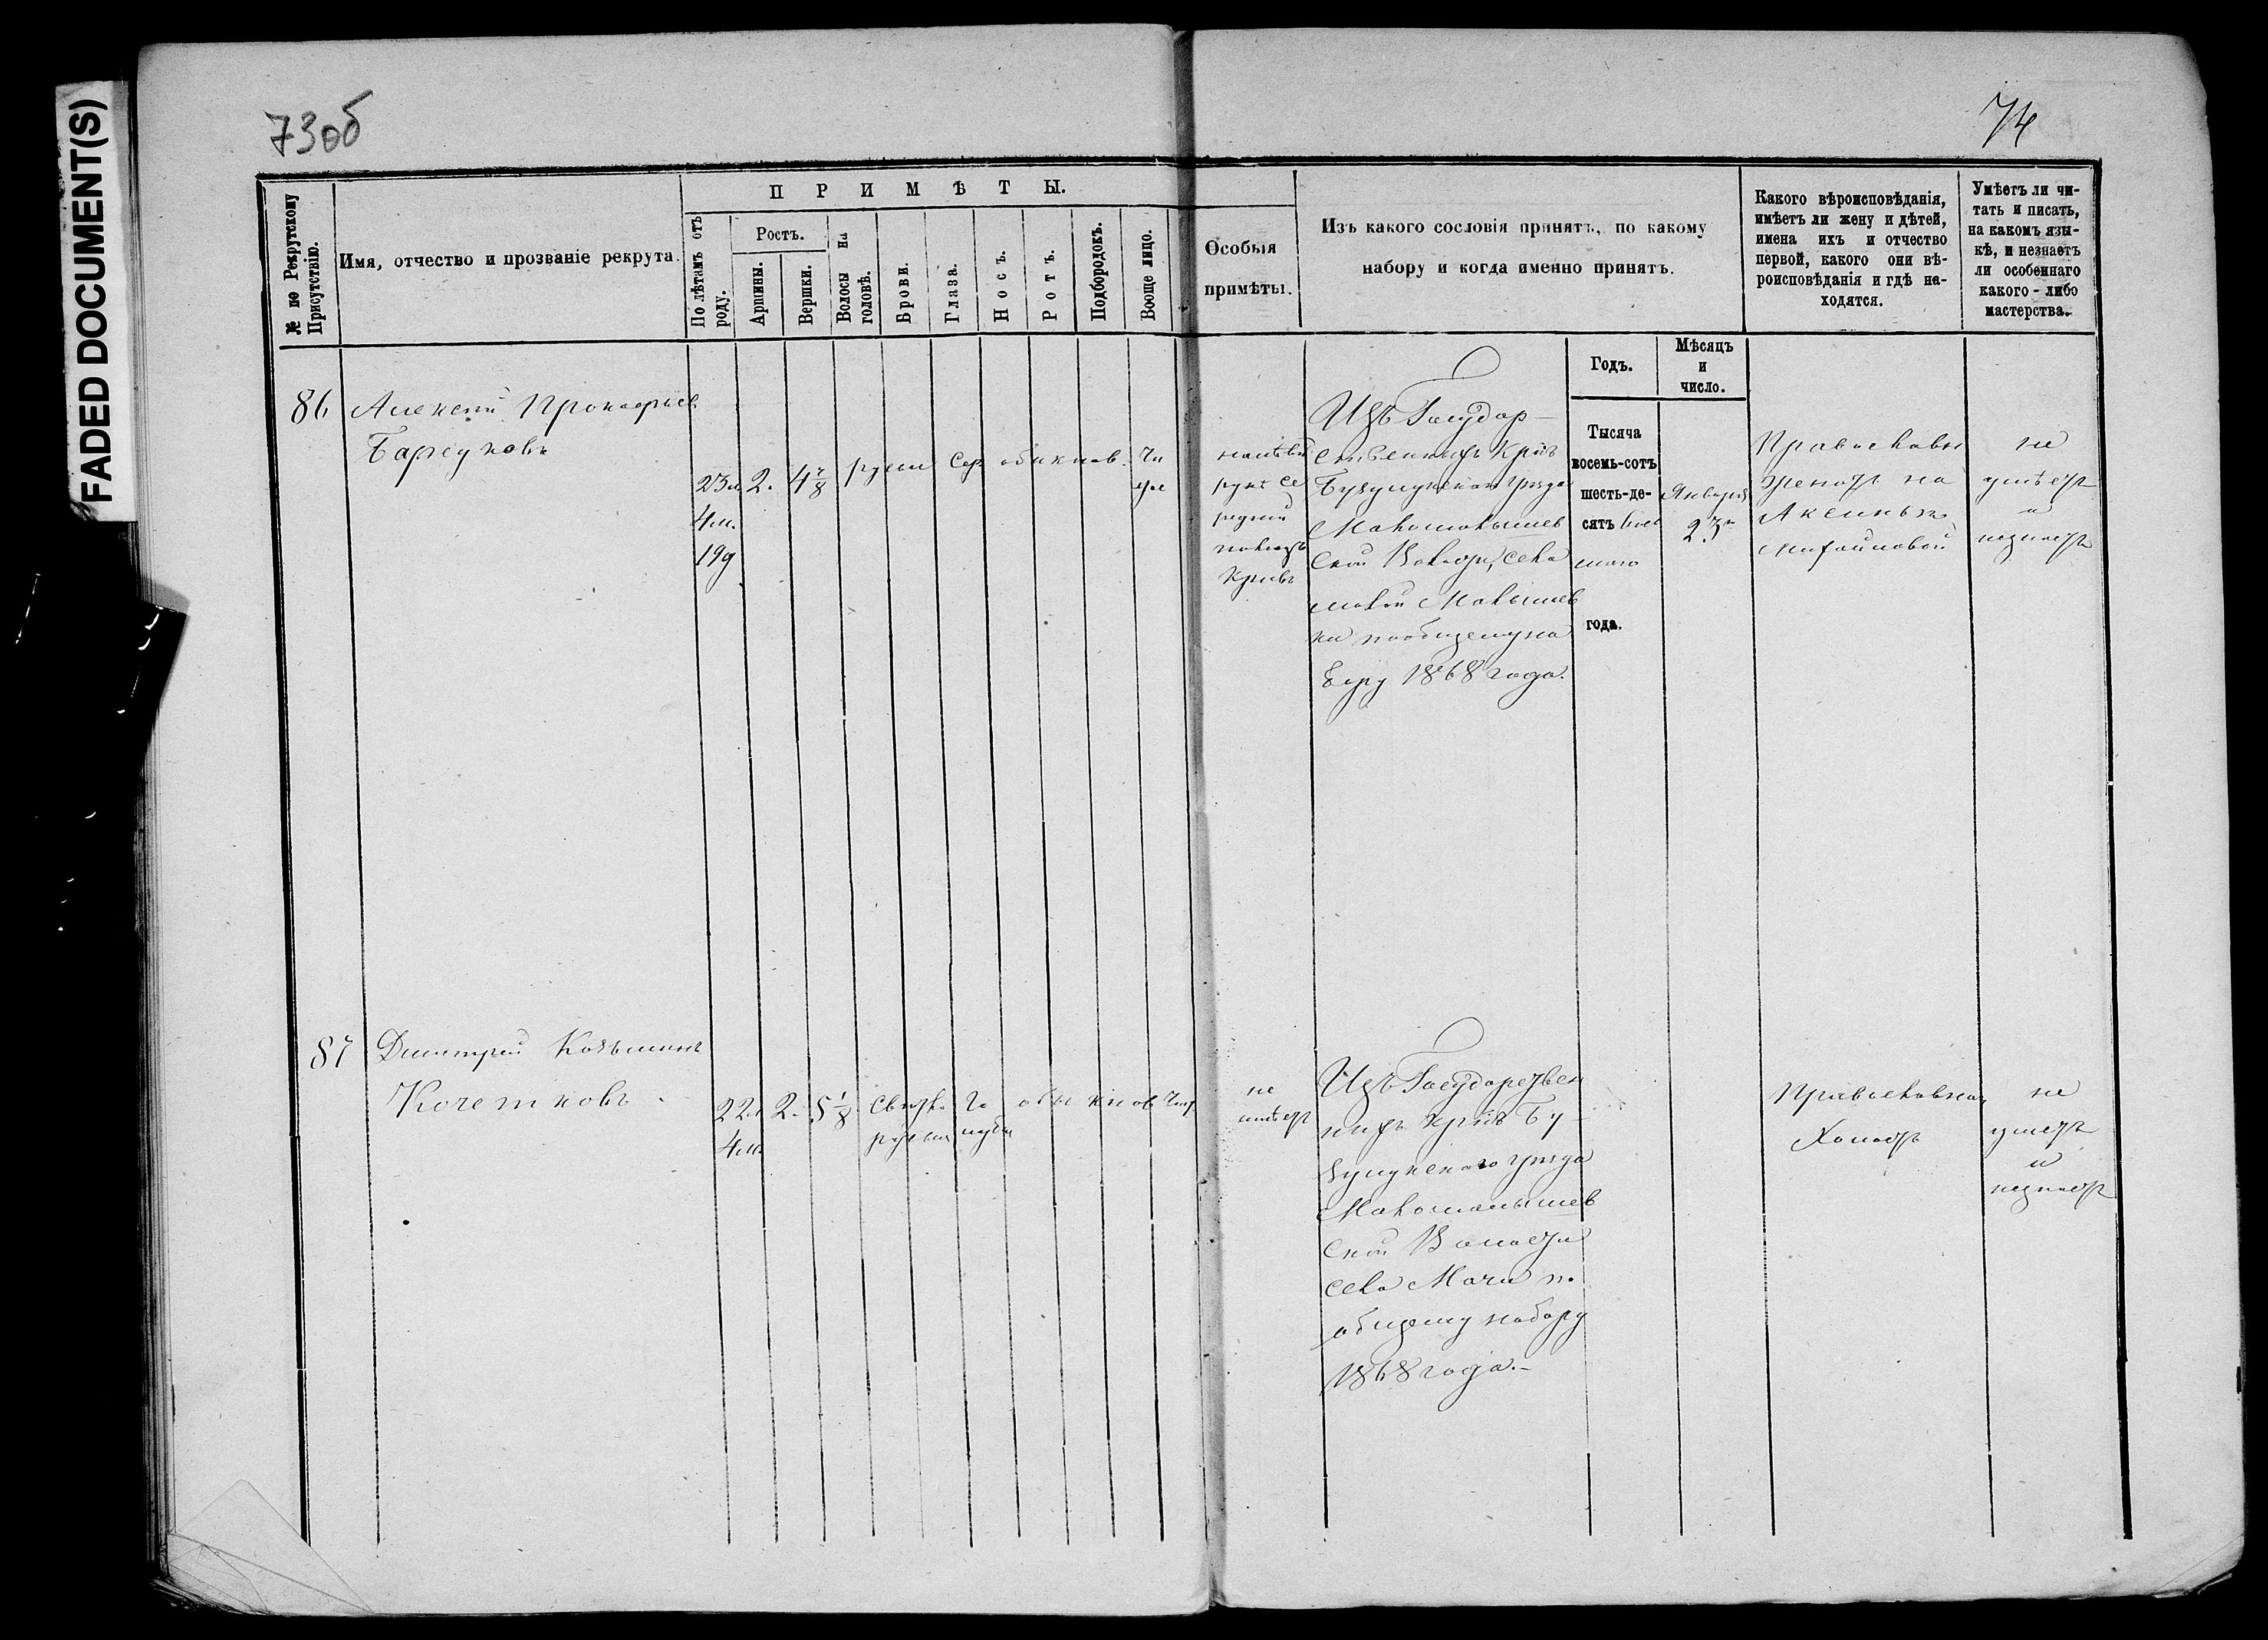 FADED DOCUMENT(S)
73об
74
№ по Рекрутскому Присутствію.
Имя, отчество и прозваніе рекрута.
ПРИМѢТЫ.
По лѣтамъ отъ роду.
Ростъ.
Аршины.
Вершки.
Волосы на головѣ.
Брови.
Глаза.
Носъ.
Ротъ.
Подбородокъ.
Вооще лицо.
Особыя
примѣты.
Изъ какого сословія принятъ, по какому
набору и когда именно принятъ.
Какого вѣроисповѣданія,
имѣетъ ли жену и дѣтей,
имена ихъ и отчество
первой, какого они вѣ-
роисповѣданія и гдѣ на-
ходятся.
Умѣетъ ли чи-
тать и писать,
на какомъ язы-
кѣ, и незнаетъ
ли особеннаго
какого-либо
мастерства.
Годъ.
Мѣсяцъ
и
число.
86
Алексей Прокофьев
Барсуковъ
23 л.
4 м.
19 д
2.
4 7/8
русы
сер
обыкнов.
чи
на
руке
Кривъ
Изъ Государ-
ственныхъ Крнъ
Бузулукскаго уезда
Малышев
ской Волости, села
Малышев
ки пообщемуна
бору 1868 года.
Тысяча
восемь-сотъ
шесть-де-
сятъ вось
маго
года.
Января
23
Православн
женатъ на
Аксинье
Михайловой
не
умѣетъ
и
незнаетъ
87
Дмитрей Козьминъ
Кочетковъ
22 л
4 м.
2.
5 1/8
светло
русыя
го
лубы
обыкнов
чис
не
имѣетъ
Изъ Государствен
ныхъ Крнъ Бу-
зулукскаго уезда
Малышев
ской Волости
села Мачи по
общему набору
1868 года.-
Православнаго
Холостъ
не
умеетъ
и
незнаетъ